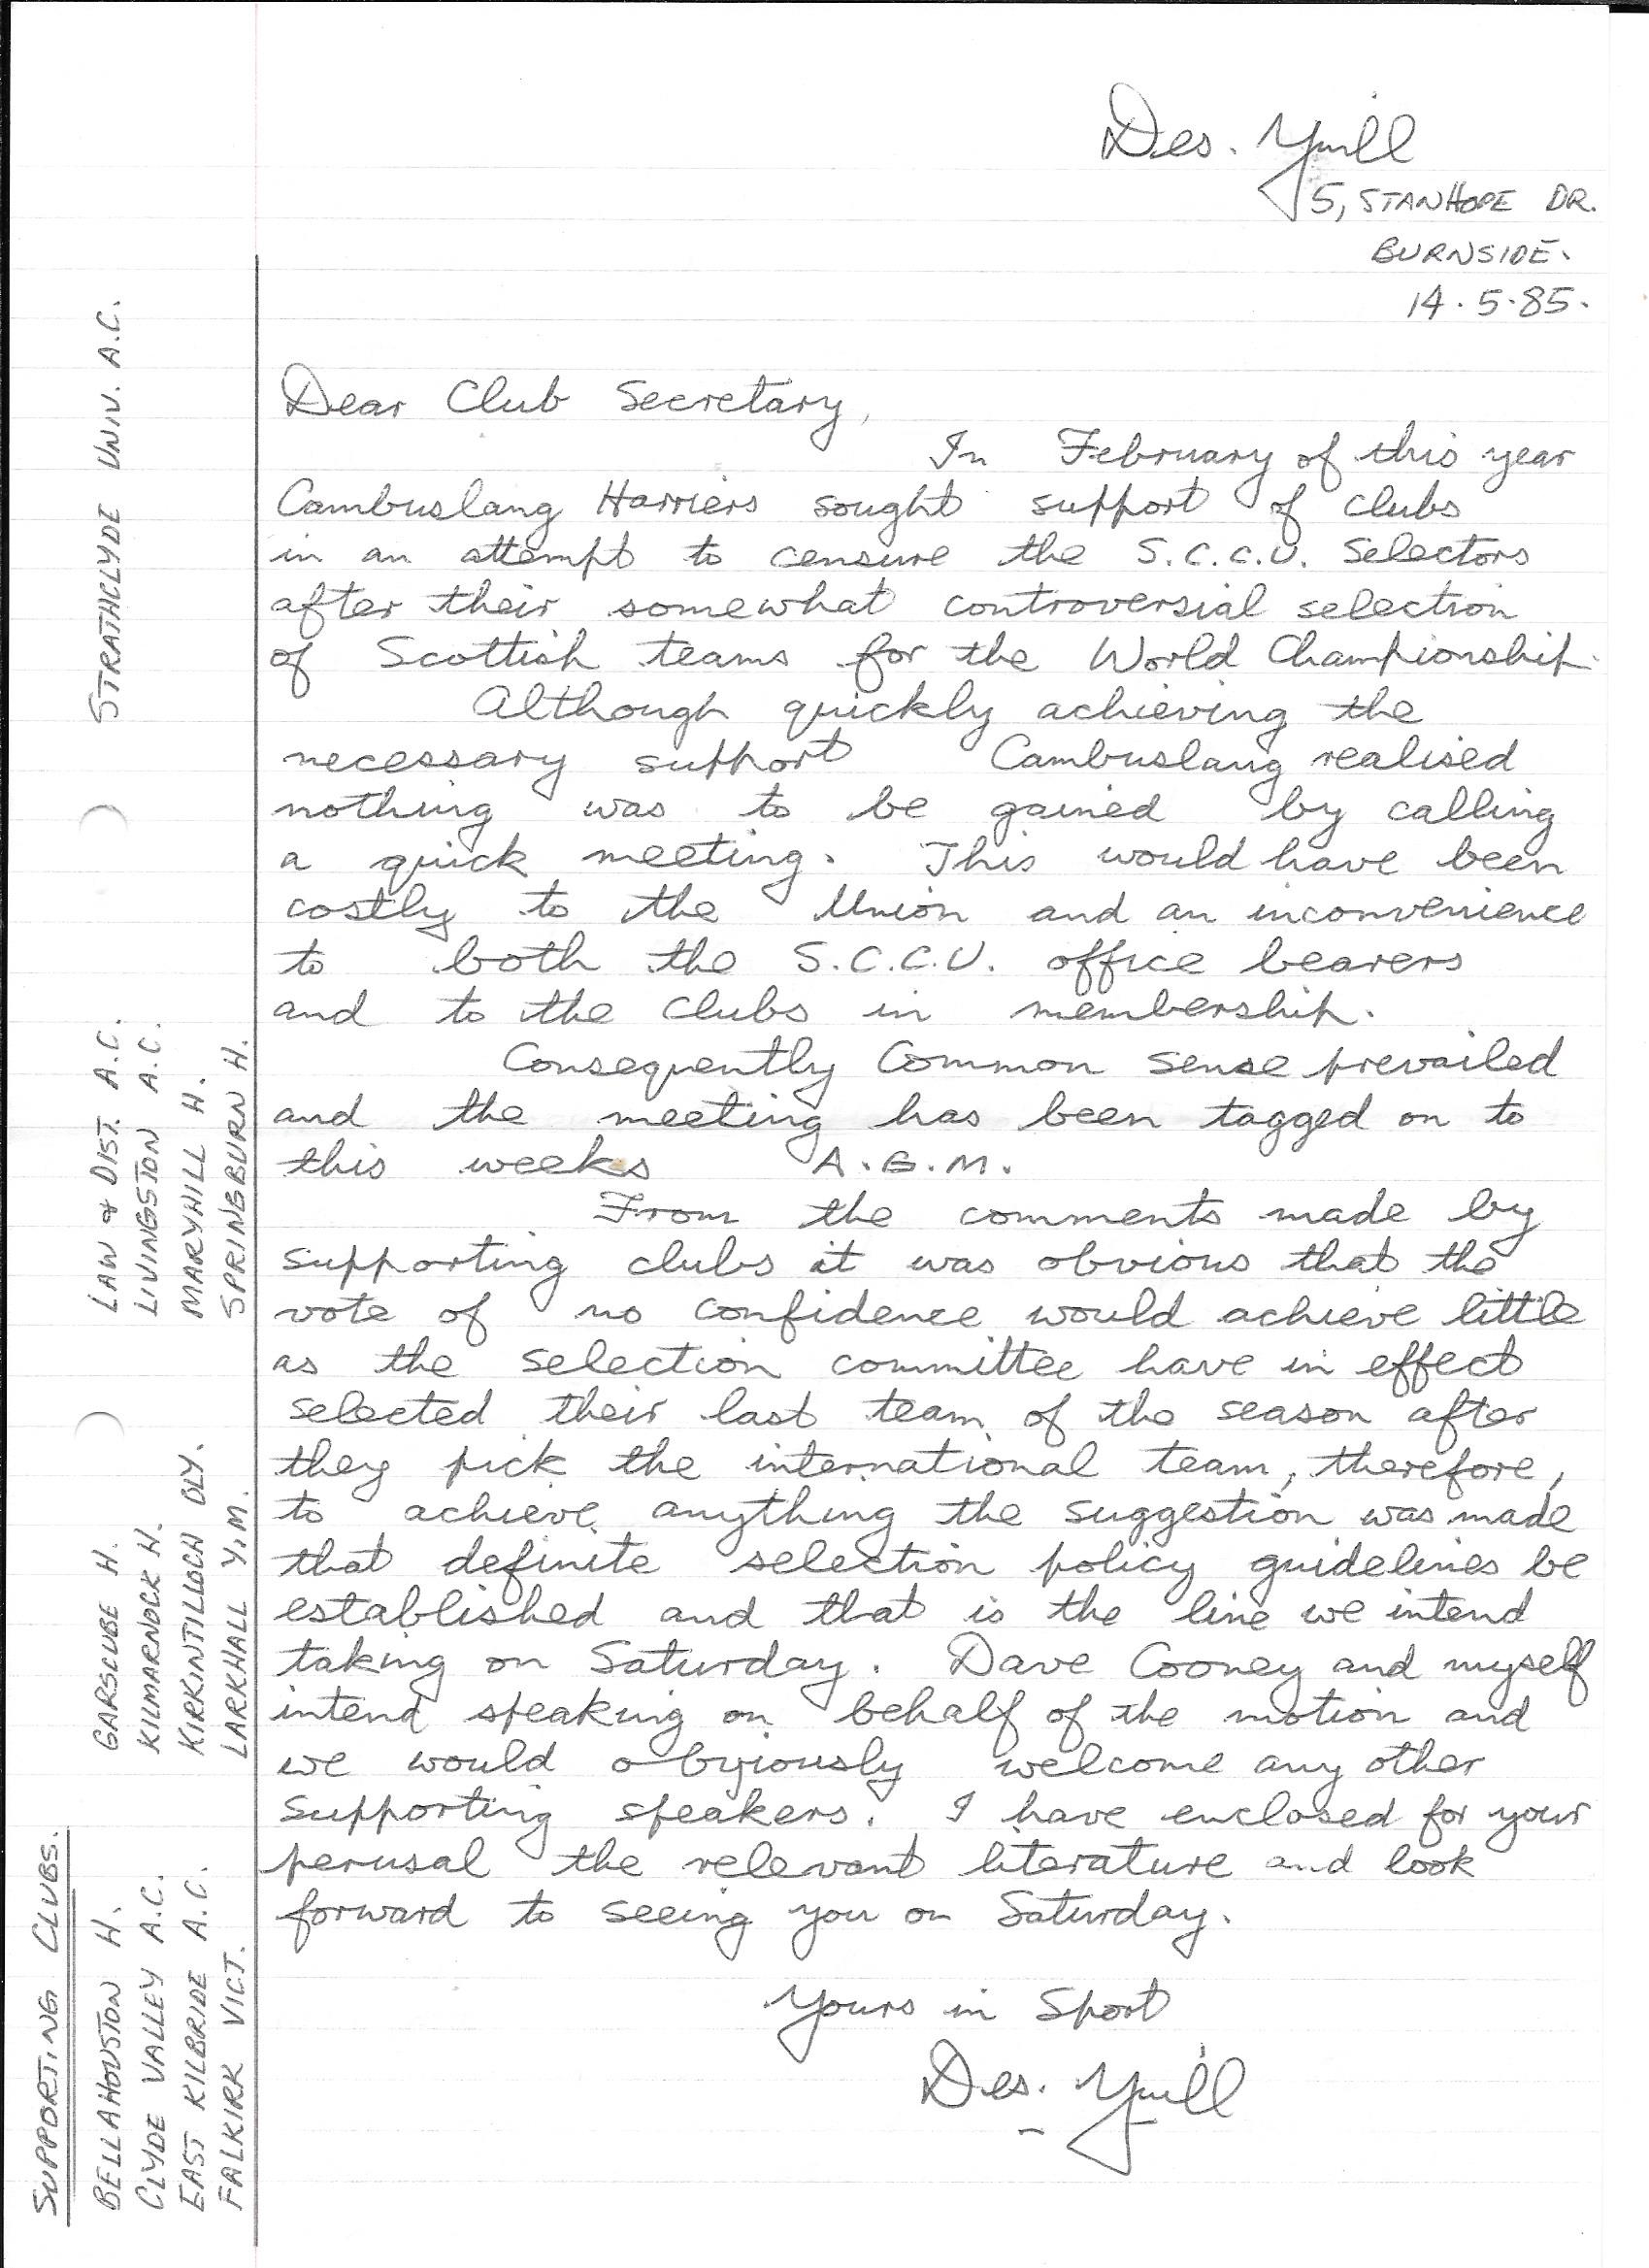 Des. Yuill
5, STANHOPE DR.
BURNSIDE.
14.5.85.
Dear Club Secretary,
In February of this year
Cambuslang Harriers sought support of clubs
in an attempt to censure the S.C.C.U. Selectors
after their somewhat controversial selection
of Scottish teams for the World Championship.
Although quickly achieving the
necessary support Cambuslang realised
nothing was to be gained by calling
a quick meeting. This would have been
costly to the Union and an inconvenience
to both the S.C.C.U. office bearers
and to the clubs in membership.
Consequently Common sense prevailed
and the meeting has been tagged on to
this weeks A.G.M.
From the comments made by
supporting clubs it was obvious that the
vote of no confidence would achieve little
as the selection committee have in effect
selected their last team of the season after
they pick the international team, therefore,
to achieve anything the suggestion was made
that definite selection policy guidelines be
established and that is the line we intend
taking on Saturday. Dave Cooney and myself
intend speaking on behalf of the motion and
we would obviously welcome any other
supporting speakers. I have enclosed for your
perusal the relevant literature and look
forward to seeing you on Saturday.
Yours in Sport
Des. Yuill
SUPPORTING CLUBS.
BELLAHOUSTON H.
CLYDE VALLEY A.C.
EAST KILBRIDE A.C.
FALKIRK VICT.
GARSCUBE H.
KILMARNOCK H.
KIRKINTILLOCH OLY.
LARKHALL Y.M.
LAW & DIST. A.C.
LIVINGSTON A.C.
MARYHILL H.
SPRINGBURN H.
STRATHCLYDE UNIV. A.C.